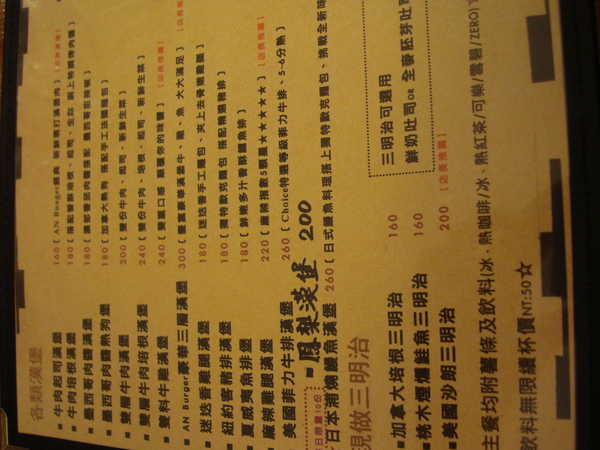 各類漢堡
▪ 牛肉起司漢堡 160 [ AN Burger經典 新鮮現打漢堡肉 ] [店長推薦]
▪ 牛肉培根漢堡 180 [ 搭配香酥培根、起司、生菜 刷上特調烤肉醬 ]
▪ 墨西哥肉醬漢堡 180 [ 濃郁番茄肉醬搭配 墨西哥 ]
▪ 墨西哥肉醬熱狗堡 180 [ 加拿大熱狗 搭配手工法國麵包 ]
▪ 雙層牛肉漢堡 200 [ 雙份牛肉、起司、新鮮生菜 ]
▪ 雙層牛肉培根漢堡 240 [ 雙份牛肉、培根、起司、新鮮生菜 ]
▪ 雙料牛雞漢堡 240 [ 雙重口感 顛覆你的味蕾 ] [店長推薦]
▪ AN Burger豪華三層漢堡 300 [ 豐富豪華滿堡牛、雞、魚 大大滿足 ] [店長推薦]
▪ 迷迭香雞腿漢堡 180 [ 迷迭香手工麵包、夾上去骨嫩雞腿 ]
▪ 紐約客豬排漢堡 180 [ 獨特歐克麵包 搭配精選豬排 ]
▪ 夏威夷魚排漢堡 180 [ 鮮嫩多汁香酥鱈魚排 ]
▪ 麻辣雞腿漢堡 220 [ 麻辣指數5顆星★★★★★ ] [店長推薦]
美國菲力牛排漢堡 260 [ Choice特選等級菲力牛排、5-6分熟 ]
▪ 鳳梨漢堡 200
每日限量10份
日本浦燒鯛魚漢堡 260 [ 日式鯛魚料理搭上獨特歐克麵包、挑戰全新味
現做三明治
▪ 加拿大培根三明治 160
▪ 桃木煙燻鮭魚三明治 160
▪ 美國沙朗三明治 200 [店長推薦]
三明治可選用
鮮奶吐司OR 全麥胚芽吐司
主餐均附薯條及飲料(冰、熱咖啡/冰、熱紅茶/可樂/雪碧/ZERO)☆
飲料無限續杯價NT:50☆